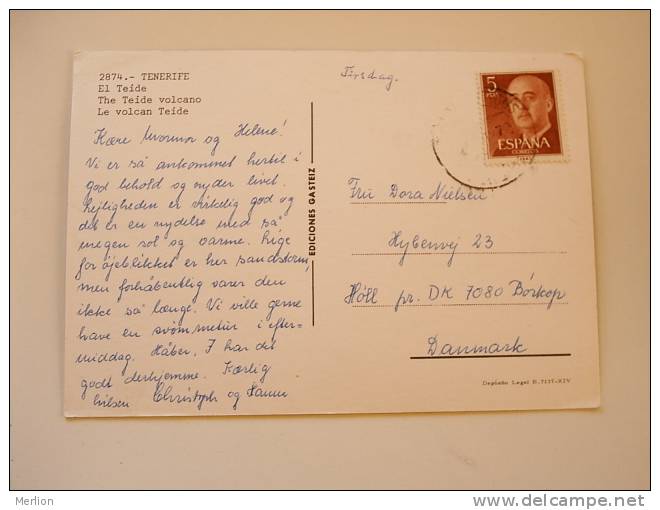 2874.- TENERIFE
El Teide
The Teide volcano
Le volcan Teide
Tirsdag.
5
PTA
ESPAÑA
CORREOS
EDICIONES GASTEIZ
Kære Mormor og Helene!
Vi er så ankommet hertil i
god behold og nyder livet.
Lejligheden er virkelig god og
det er en nydelse med så
megen sol og varme. Lige
for øjeblikket er her sandstorm,
men forhåbentlig varer den
ikke så længe. Vi ville gerne
have en svømmetur i efter-
middag. Håber, I har det
godt derhjemme. Kærlig
hilsen Christoph og Hanne
Fru Dora Nielsen
Hybenvej 23
Höll pr. DK 7080 Börkop
Danmark
Depósito Legal B. 7137-XIV
Merlion
www.delcampe.net